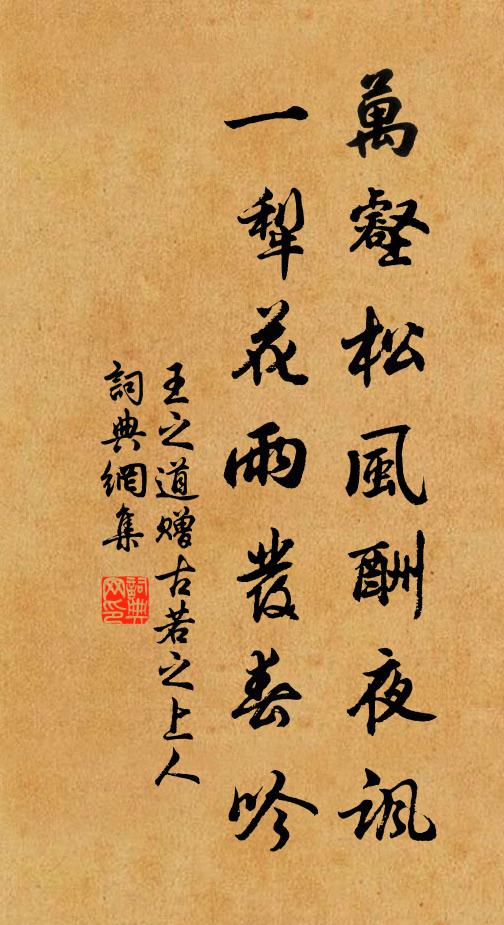 萬壑松風酬夜諷
一犁花雨發春吟
王之道贈古若之上人
詞典網集
詞典網印